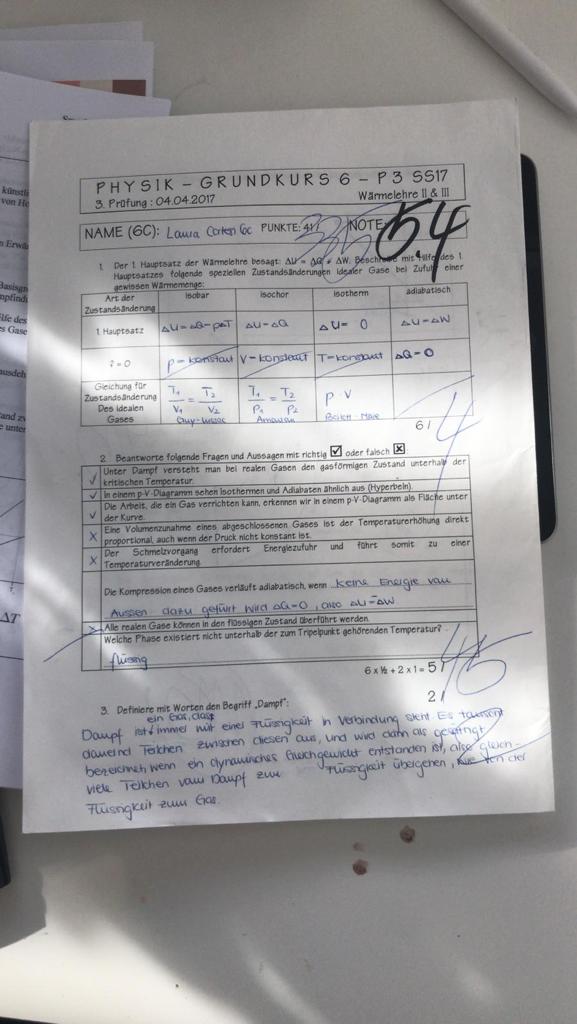 PHYSIK – GRUNDKURS 6 – P3 SS17
3. Prüfung : 04.04.2017 Wärmelehre II & III
NAME (6C): Laura PUNKTE: 41/ NOTE: 54
1. Der 1. Hauptsatz der Wärmelehre besagt: ΔU = ΔQ + ΔW. Beschreibe mit Hilfe des 1.
Hauptsatzes folgende speziellen Zustandsänderungen idealer Gase bei Zufuhr einer
gewissen Wärmemenge:
Art der Zustandsänderung isobar isochor isotherm adiabatisch
1. Hauptsatz ΔU=ΔQ-pΔT ΔU=ΔQ ΔU= 0 ΔU=ΔW
? = 0 p=konstant V=konstant T=konstant ΔQ=0
Gleichung für Zustandsänderung Des idealen Gases T₁/V₁ = T₂/V₂ T₁/P₁ = T₂/P₂ p · V
6/ 4
2. Beantworte folgende Fragen und Aussagen mit richtig ☑ oder falsch ☒:
✓ Unter Dampf versteht man bei realen Gasen den gasförmigen Zustand unterhalb der
kritischen Temperatur.
✓ In einem p-V-Diagramm sehen Isothermen und Adiabaten ähnlich aus (Hyperbeln).
✓ Die Arbeit, die ein Gas verrichten kann, erkennen wir in einem p-V-Diagramm als Fläche unter
der Kurve.
X Eine Volumenzunahme eines abgeschlossenen Gases ist der Temperaturerhöhung direkt
proportional, auch wenn der Druck nicht konstant ist.
X Der Schmelzvorgang erfordert Energiezufuhr und führt somit zu einer
Temperaturveränderung.
Die Kompression eines Gases verläuft adiabatisch, wenn keine Energie von
Aussen dazu gefürt wird ΔQ=0, also ΔU=ΔW
X Alle realen Gase können in den flüssigen Zustand überführt werden.
Welche Phase existiert nicht unterhalb der zum Tripelpunkt gehörenden Temperatur?
flüssig
6 x ½ + 2 x 1 = 5/ 4,5
2/
3. Definiere mit Worten den Begriff „Dampf":
ein Gas, dass
Dampf ist immer mit einer Flüssigkeit in Verbindung steht. Es tauscht
dauernd Teilchen zwischen diesen aus, und wird dann als gesättigt
bezeichnet, wenn ein dynamisches Gleichgewicht entstanden ist, also gleich-
viele Teilchen vom Dampf zur Flüssigkeit übergehen, wie von der
Flüssigkeit zum Gas.
ΔT